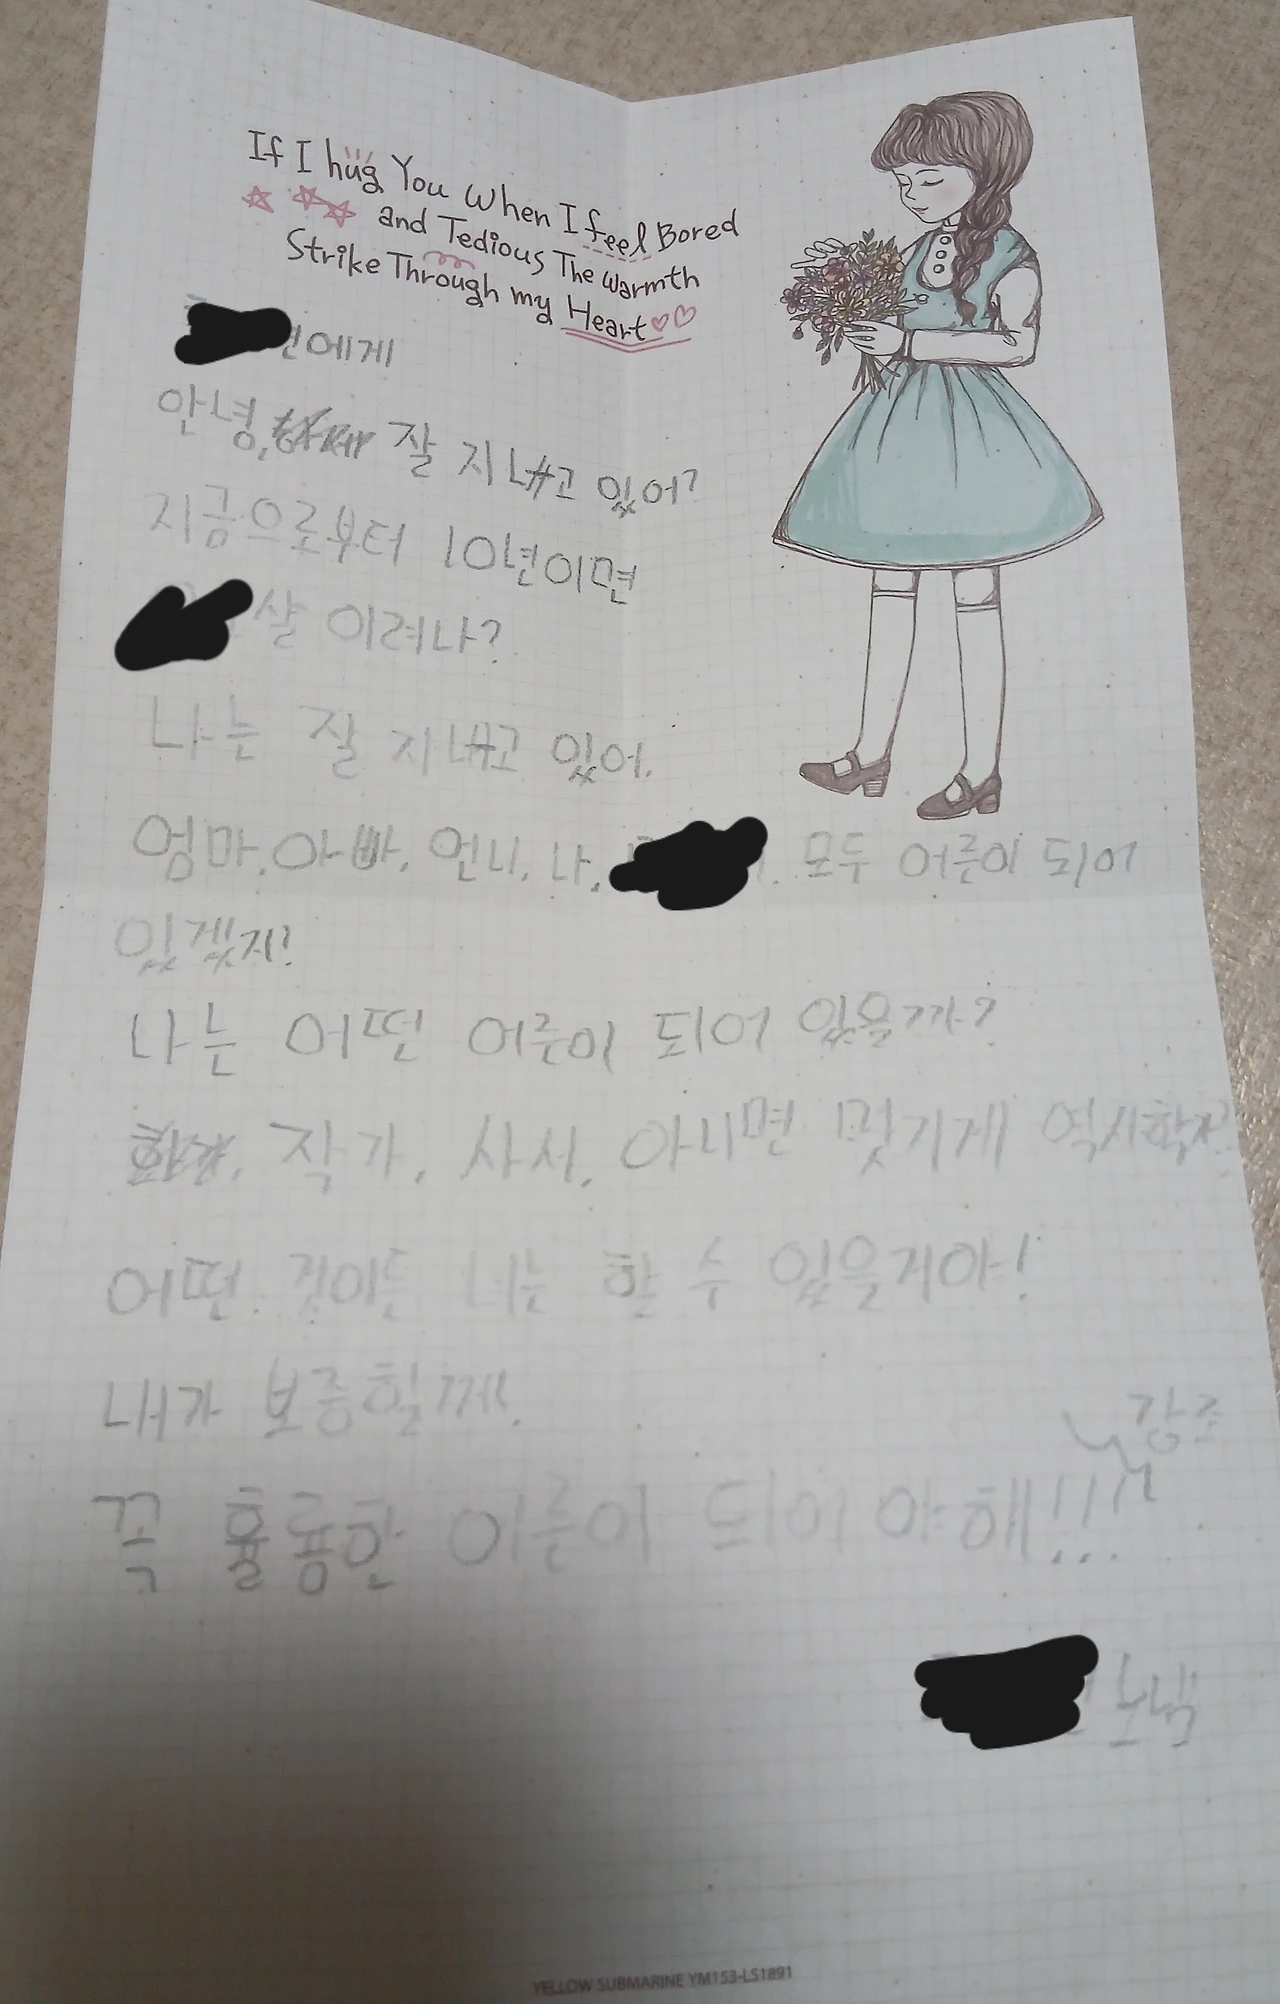 If I hug You When I feel Bored
and Tedious The Warmth
Strike Through my Heart
에게
안녕, 잘 지내고 있어?
지금으로부터 10년이면
살 이려나?
나는 잘 지내고 있어.
엄마, 아빠, 언니, 나, 모두 어른이 되어
있겠지!
나는 어떤 어른이 되어 있을까?
작가, 사서, 아니면 멋지게 역사학자?
어떤 것이든 너는 할 수 있을거야!
내가 보증할께!
강조
꼭 휼륭한 어른이 되어야해!!!
보냄
YELLOW SUBMARINE YM153-LS1891